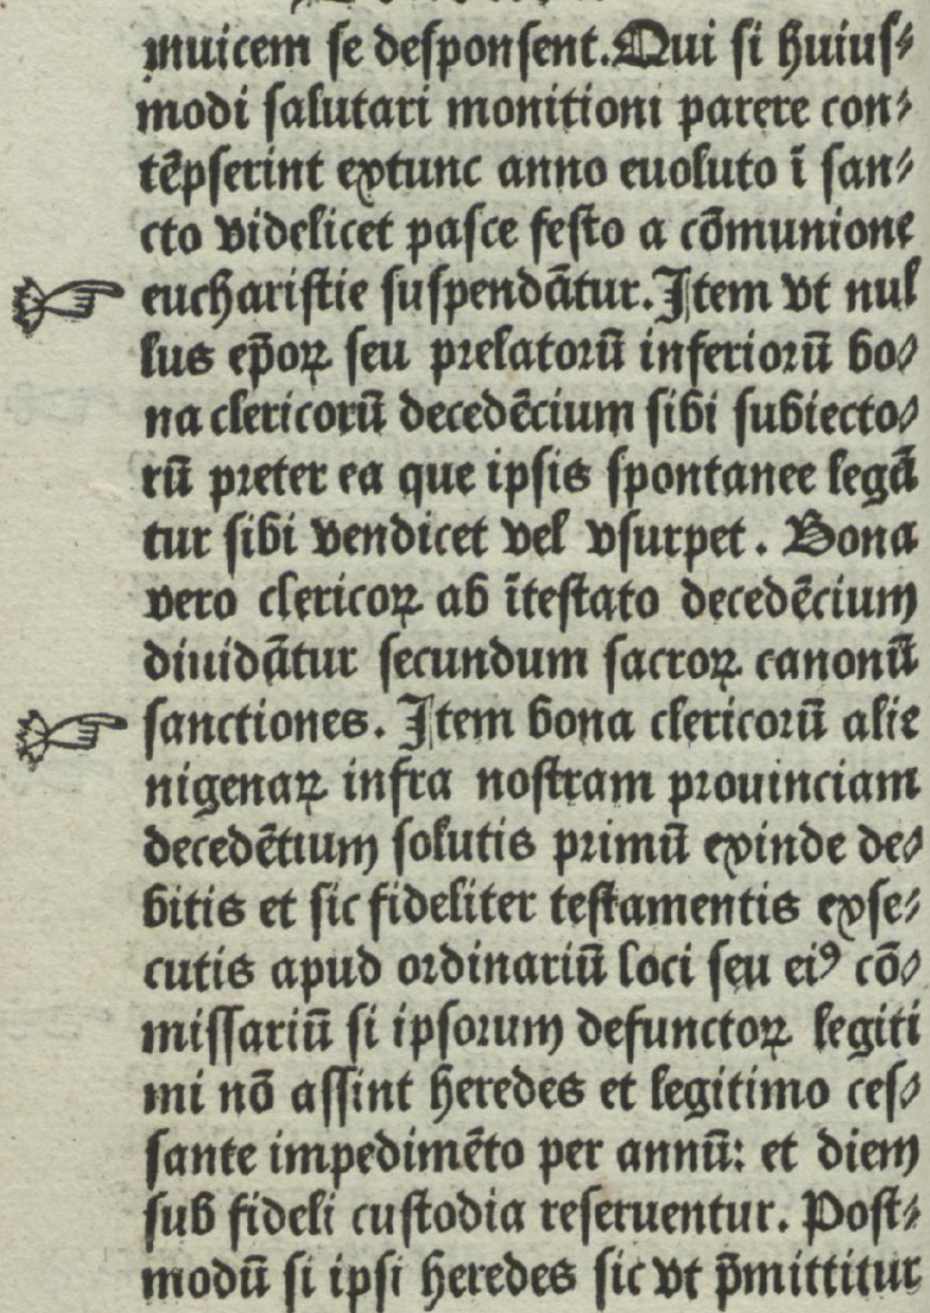 inuicem se desponsent. Qui si huius⸗
modi salutari monitioni parere con⸗
tēpserint extunc anno euoluto ī san⸗
cto videlicet pasce festo a cōmunione
eucharistie suspendātur. Item vt nul
lus ep̄oꝝ seu prelatorū inferiorū bo⸗
na clericorū decedēcium sibi subiecto⸗
rū preter ea que ipsis spontanee legā
tur sibi vendicet vel vsurpet. Bona
vero clericoꝝ ab ītestato decedēcium
diuidātur secundum sacroꝝ canonū
sanctiones. Item bona clericorū alie
nigenaꝝ infra nostram prouinciam
decedētium solutis primū exinde de⸗
bitis et sic fideliter testamentis exse⸗
cutis apud ordinariū loci seu eiꝰ cō⸗
missariū si ipsorum defunctoꝝ legiti
mi nō assint heredes et legitimo ces⸗
sante impedimēto per annū: et diem
sub fideli custodia reseruentur. Post⸗
modū si ipsi heredes sic vt p̄mittitur